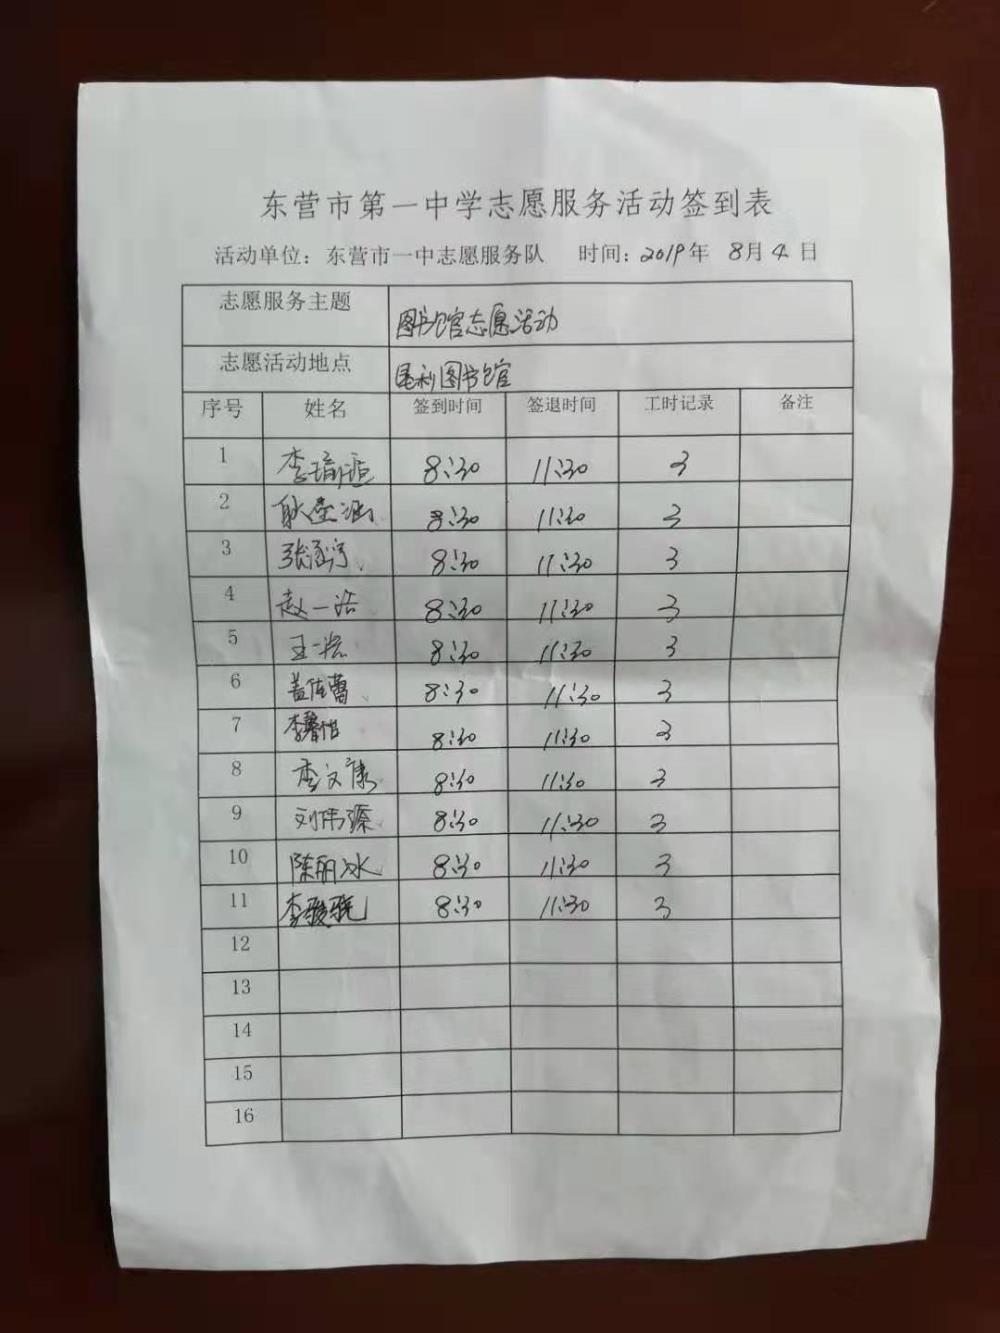 东营市第一中学志愿服务活动签到表
活动单位：东营市一中志愿服务队 时间：2019年 8月 4 日
志愿服务主题 图书馆志愿活动
志愿活动地点 垦利图书馆
序号 姓名 签到时间 签退时间 工时记录 备注
1 李 8:30 11:30 3
2 耿 8:30 11:30 3
3 张 8:30 11:30 3
4 赵一浩 8:30 11:30 3
5 王一宏 8:30 11:30 3
6 盖佳蕾 8:30 11:30 3
7 李馨怡 8:30 11:30 3
8 李文康 8:30 11:30 3
9 刘伟 8:30 11:30 3
10 陈丽冰 8:30 11:30 3
11 李骏骁 8:30 11:30 3
12
13
14
15
16